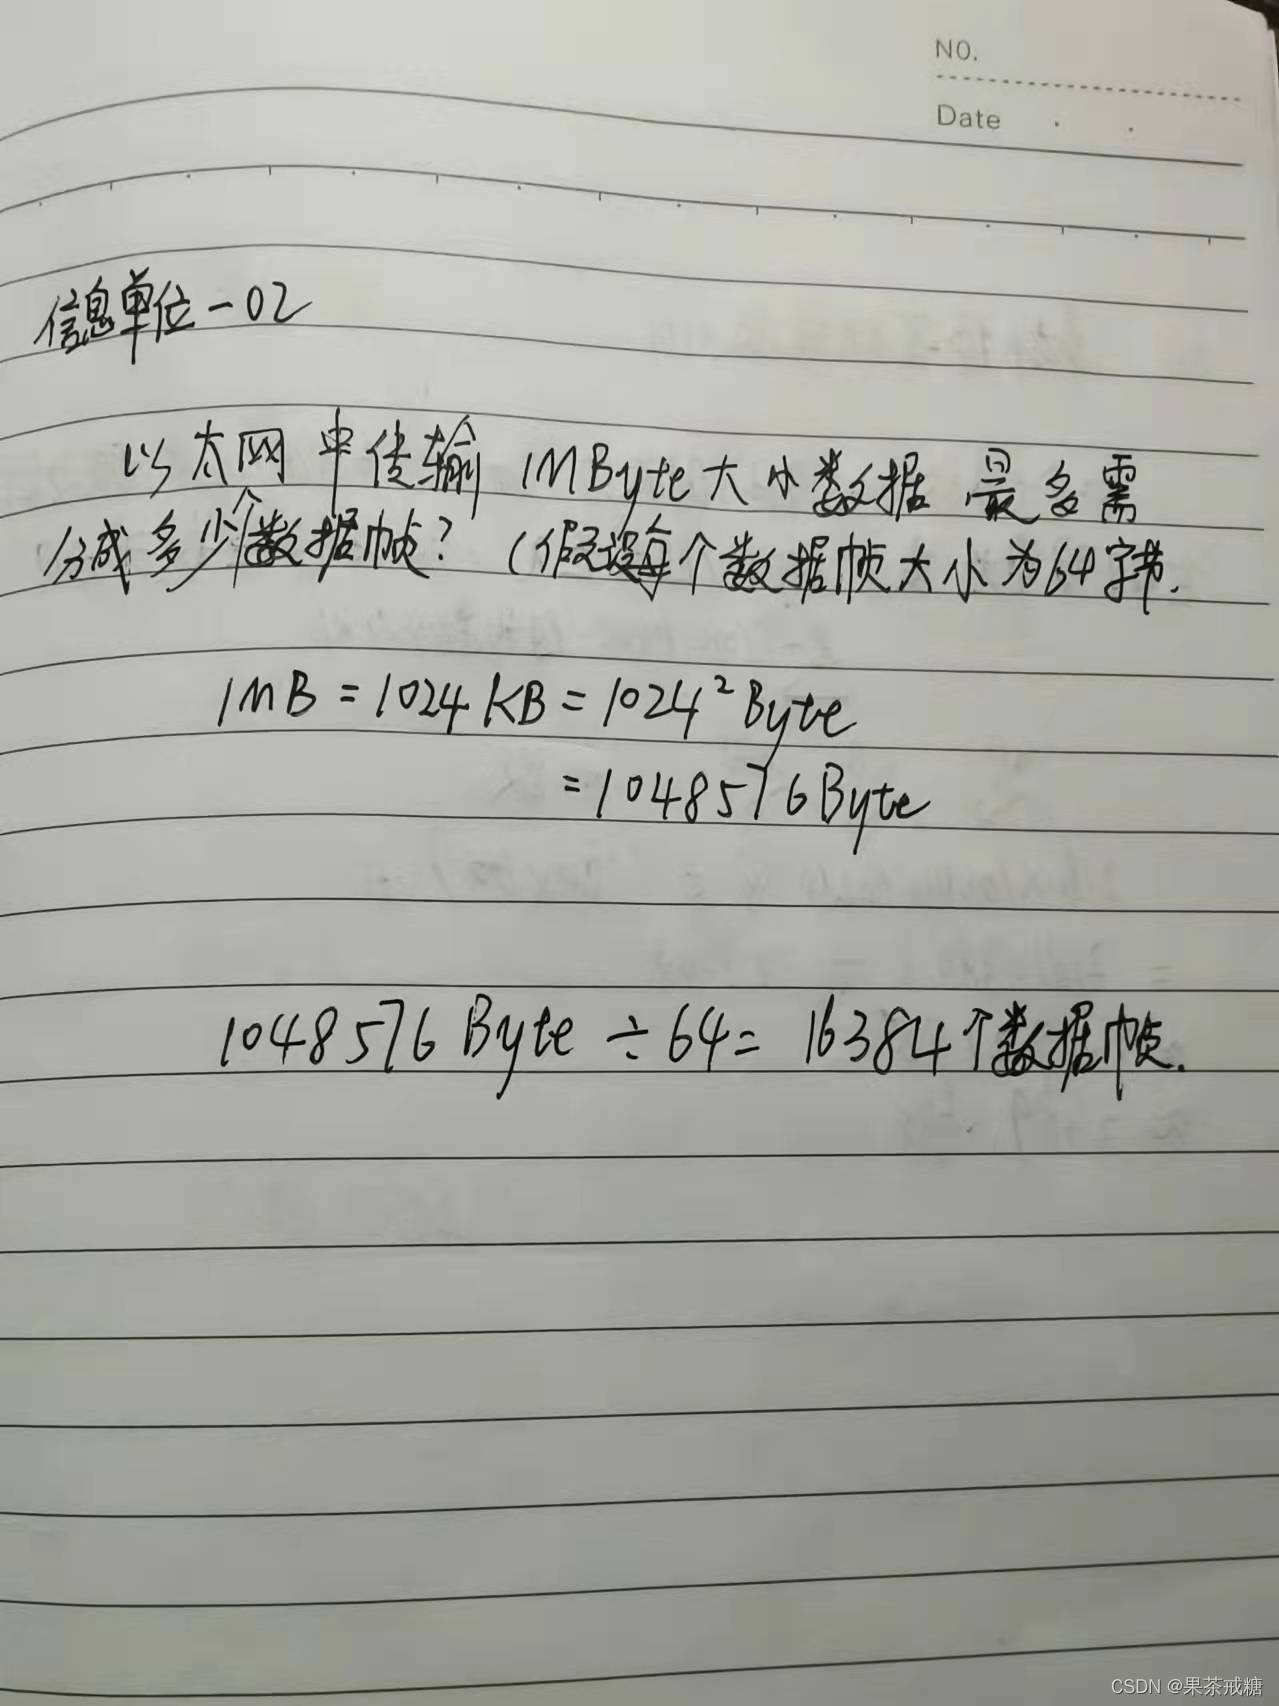 NO.
Date
信息单位-02
以太网中传输 1MByte大小数据 最多需
分成多少个数据帧? (假设每个数据帧大小为64字节.
1MB = 1024KB = 1024² Byte
= 1048576 Byte
1048576 Byte ÷ 64 = 16384个数据帧.
CSDN @果茶戒糖